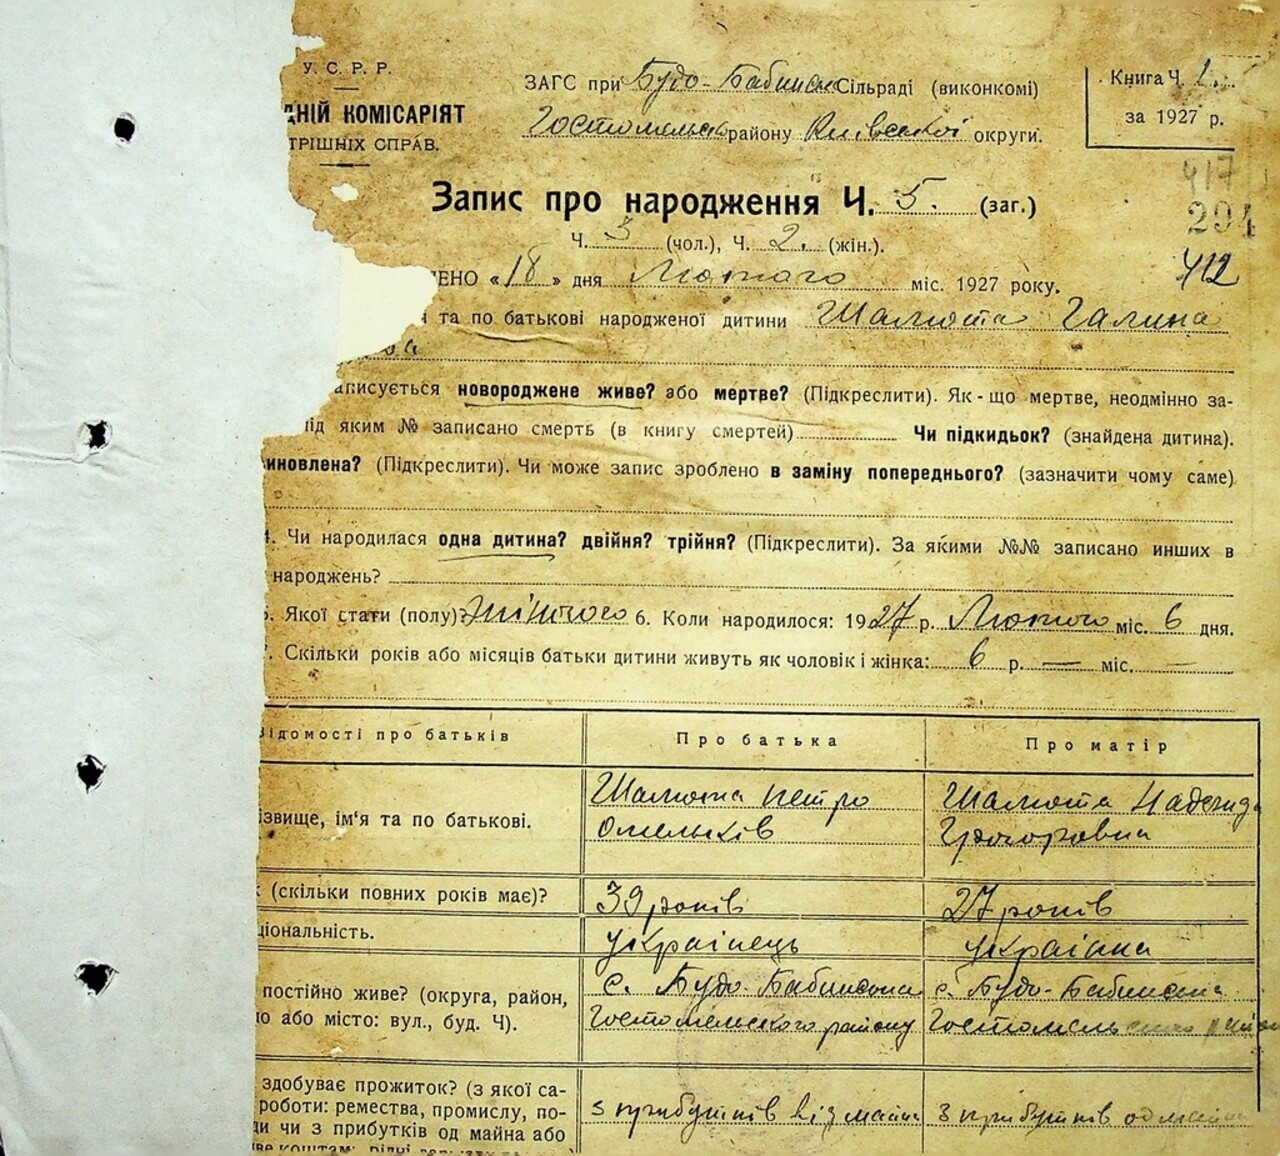 У. С. Р. Р.
ДНІЙ КОМІСАРІЯТ
ТРІШНІХ СПРАВ.
ЗАГС при Будо-Бабинськ Сільраді (виконкомі)
Гостомельськ району Київської округи.
Книга Ч. 1
за 1927 р.
417
294
412
Запис про народження Ч. 5. (заг.)
Ч. 3 (чол.), Ч. 2. (жін.).
ЕНО « 18 » дня Лютого міс. 1927 року.
та по батькові народженої дитини Шалюта Галина
ва
аписується новороджене живе? або мертве? (Підкреслити). Як-що мертве, неодмінно за-
ід яким № записано смерть (в книгу смертей) Чи підкидьок? (знайдена дитина).
иновлена? (Підкреслити). Чи може запис зроблено в заміну попереднього? (зазначити чому саме)
4. Чи народилася одна дитина? двійня? трійня? (Підкреслити). За якими №№ записано инших в
народжень?
5. Якої стати (полу)? жіночого 6. Коли народилося: 1927 р. Лютого міс. 6 дня.
7. Скільки років або місяців батьки дитини живуть як чоловік і жінка: 6 р. — міс. —
ідомості про батьків Про батька Про матір
ізвище, ім'я та по батькові. Шалюта Петро Шалюта Надежда
Омельків Григоровна
к (скільки повних років має)? 39 років 27 років
ціональність. українець українка
постійно живе? (округа, район, с. Будо-Бабинська с. Будо-Бабинська
о або місто: вул., буд. Ч). Гостомельского району Гостомельского
здобуває прожиток? (з якої са-
роботи: ремества, промислу, по- з прибутків від майна з прибутків од майна
ди чи з прибутків од майна або